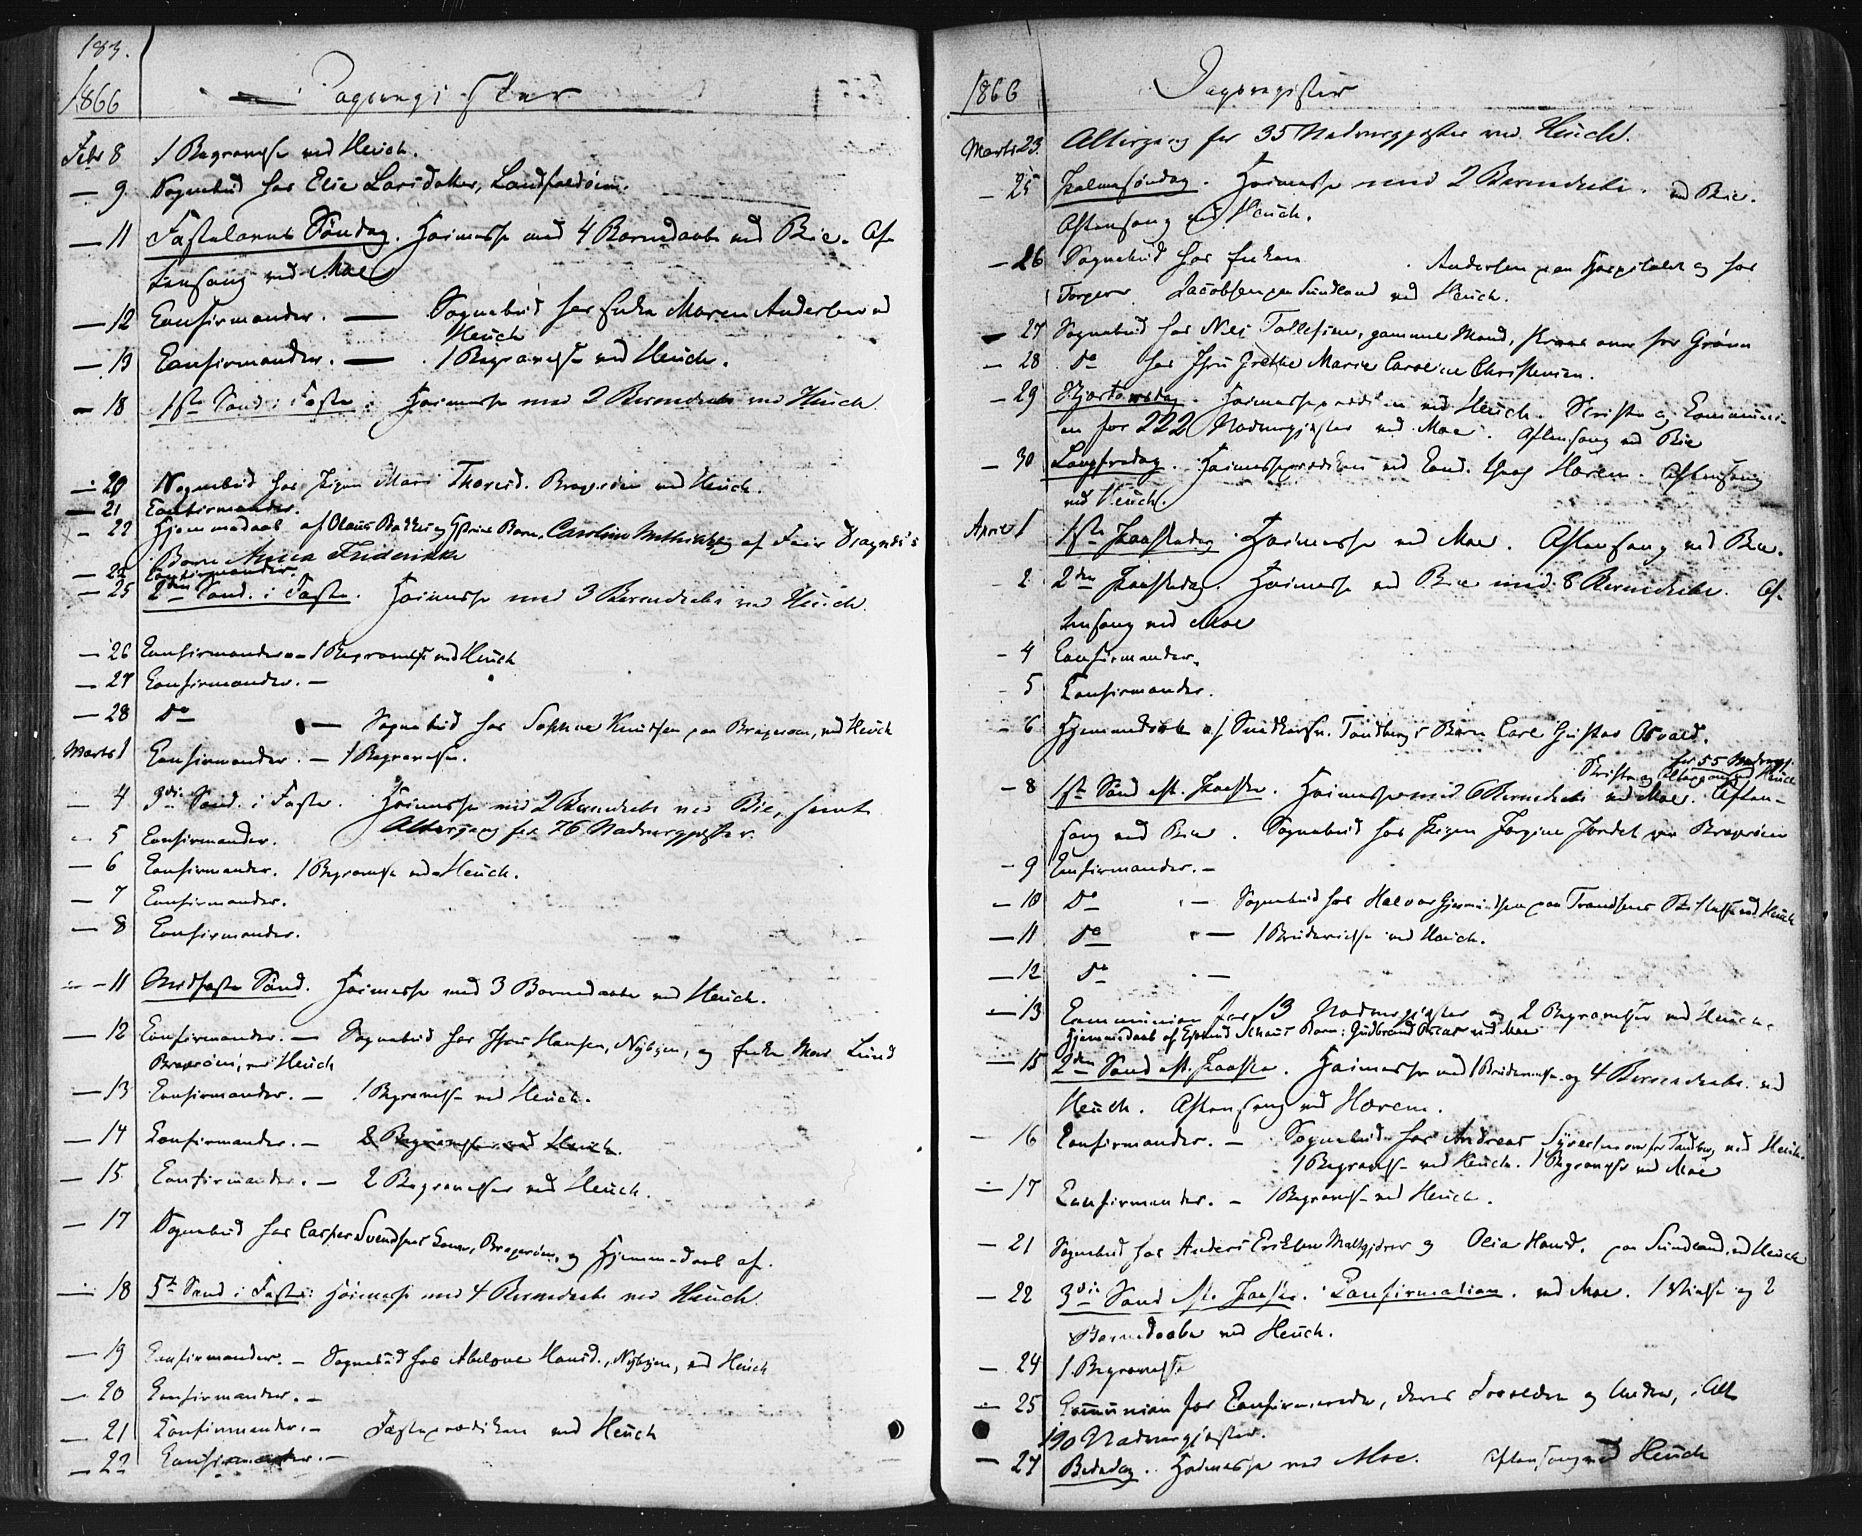 183.
1866
Dagsregister
Febr 8 1 Begravelse ved Heuch.
— 9 Sognebud hos Elie Larsdatter, Landfaldøien.
— 11 Fastelavns Søndag. Høimesse med 4 Barnedaab ved Bie. Af-
tensang ved Moe
— 12 Confirmander. — Sognebud hos Enken Maren Andersen ved
Heuch
— 13 Confirmander. — 1 Begravelse ved Heuch.
— 18 1ste Sønd. i Faste. Høimesse med 2 Barnedaab ved Heuch.
— 20 Sognebud hos Pigen Mari Thorsd. Bragerøen ved Heuch.
— 21 Confirmander.
— 22 Hjemmedaab af Olaus Barn, Caroline Mathilde og af
Barn Anna Fredrikke
— 22 Confirmander.
— 25 2den Sønd. i Faste. Høimesse med 3 Barnedaab ved Heuch.
— 26 Confirmander — 1 Begravelse ved Heuch
— 27 Confirmander. —
— 28 Do — Sognebud hos Sophie Knudsen paa Bragerøen, ved Heuch
Marts 1 Confirmander. — 1 Begravelse.
— 4 3die Sønd. i Faste. Høimesse med 2 Barnedaab ved Bie, samt
Altergang for 76 Nadvergjester.
— 5 Confirmander.
— 6 Confirmander. 1 Begravelse ved Heuch.
— 7 Confirmander.
— 8 Confirmander.
— 11 Midfaste Sønd. Høimesse med 3 Barnedaab ved Heuch.
— 12 Confirmander. — Sognebud hos Hansen, Nybyen, og Enken Lund
Bragerøen, ved Heuch
— 13 Confirmander. — 1 Begravelse ved Heuch.
— 14 Confirmander. — 2 Begravelser ved Heuch.
— 15 Confirmander. — 2 Begravelser ved Heuch.
— 17 Sognebud hos Casper Svendsens Kone, Bragerøen, og Hjemmedaab af.
— 18 5te Sønd. i Faste. Høimesse med 4 Barnedaab ved Heuch.
— 19 Confirmander. — Sognebud hos Abelone Hansd., Nybyen, ved Heuch
— 20 Confirmander. —
— 21 Confirmander. — Fasteprædiken ved Heuch
— 22 Confirmander. —
1866
Dagsregister
Marts 23. Altergang for 35 Nadvergjester ved Heuch.
— 25 Palmesøndag. Høimesse med 2 Barnedaab. ved Bie.
Aftensang ved Heuch.
— 26 Sognebud hos Enken Andersen paa Hospitalet og hos
Torger Jacobsen paa Sundland ved Heuch.
— 27 Sognebud hos Niels Tollefsen, gammel Mand,
— 28 Do hos Grethe Marie Caroline Christensen.
— 29 Skjærtorsdag. Høimesseprædiken ved Heuch. Skrifte og Communi-
on for 222 Nadvergjester ved Moe. Aftensang ved Bie
— 30 Langfredag. Høimesseprædiken ved Cand. theol Horem. Aftensang
ved Heuch.
April 1 1ste Paaskedag Høimesse ved Moe. Aftensang ved Bie.
— 2 2den Paaskedag. Høimesse ved Bie med 8 Barnedaab. Af-
tensang ved Moe
— 4 Confirmander.
— 5 Confirmander.
— 6 Hjemmedaab af Tandbergs Barn Carl Gustav Osvald.
for 55 Nadvergj.
Skrifte og Altergang ved Heuch
— 8 1ste Sønd eft. Paaske. Høimesse med 6 Barnedaab ved Moe. Aften-
sang ved Bie. Sognebud hos Pigen Jørgine Jordet paa Bragerøen
— 9 Confirmander. —
— 10 Do — Sognebud hos Halvor Gjermundsen paa ved Heuch
— 11 Do — 1 Brudevielse ved Heuch.
— 12 Do —
— 13 Communion for 13 Nadvergjester og 2 Begravelser ved Heuch.
Hjemmedaab af Barn: Gudbrand Oscar ved Moe
— 15 2den Sønd eft. Paaske. Høimesse med 1 Brudevielse og 4 Barnedaab. ved
Heuch. Aftensang ved Horem.
— 16 Confirmander. — Sognebud hos Andreas Syversen ved Heuch.
1 Begravelse ved Heuch. 1 Begravelse ved Moe
— 17 Confirmander. — 1 Begravelse ved Heuch.
— 21 Sognebud hos Anders Eriksen Maltgjører og Olia Hansd. paa Sundland, ved Heuch
— 22 3die Sønd eft. Paaske. Confirmation. ved Moe. 1 Vielse og 2
Barnedaabe ved Heuch.
— 24 1 Begravelse
— 25 Communion for Confirmerede, deres Forældre og Andre, i Alt
190 Nadvergjester.
— 27 Bededag. Høimesse ved Moe. Aftensang ved Heuch